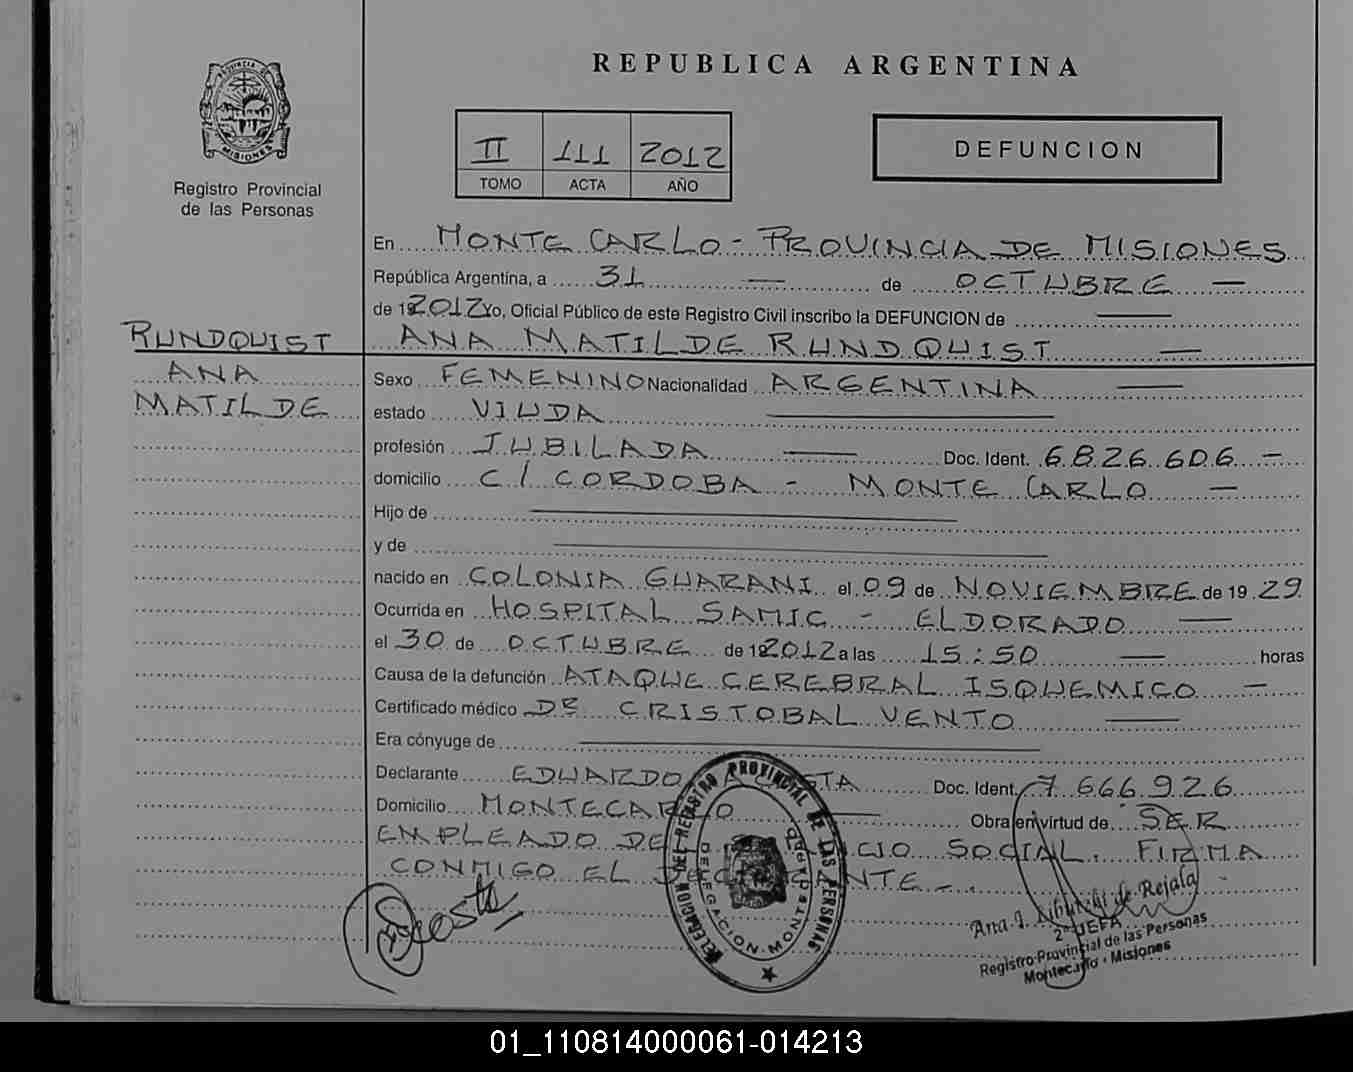 REPUBLICA ARGENTINA
PROVINCIA DE
MISIONES
Registro Provincial
de las Personas
II 111 2012
TOMO ACTA AÑO
DEFUNCION
En MONTE CARLO - PROVINCIA DE MISIONES
República Argentina, a 31 — de OCTUBRE —
de 2012 Yo, Oficial Público de este Registro Civil inscribo la DEFUNCION de —
RUNDQUIST
ANA
MATILDE
ANA MATILDE RUNDQUIST —
Sexo FEMENINO Nacionalidad ARGENTINA —
estado VIUDA —
profesión JUBILADA — Doc. Ident. 6826606 -
domicilio C/ CORDOBA - MONTE CARLO —
Hijo de —
y de —
nacido en COLONIA GUARANI el 09 de NOVIEMBRE de 1929
Ocurrida en HOSPITAL SAMIC - ELDORADO —
el 30 de OCTUBRE de 2012 a las 15:50 — horas
Causa de la defunción ATAQUE CEREBRAL ISQUEMICO -
Certificado médico DR CRISTOBAL VENTO —
Era cónyuge de —
Declarante EDUARDO Doc. Ident. 7666926
Domicilio MONTECARLO — Obra en virtud de SER
EMPLEADO DE SOCIAL. FIRMA
CONMIGO EL DECLARANTE -
DELEGACION DEL REGISTRO PROVINCIAL DE LAS PERSONAS
DELEGACION MONTECARLO
Ana I. de Rejala
2ª JEFA
Registro Provincial de las Personas
Montecarlo - Misiones
01_110814000061-014213